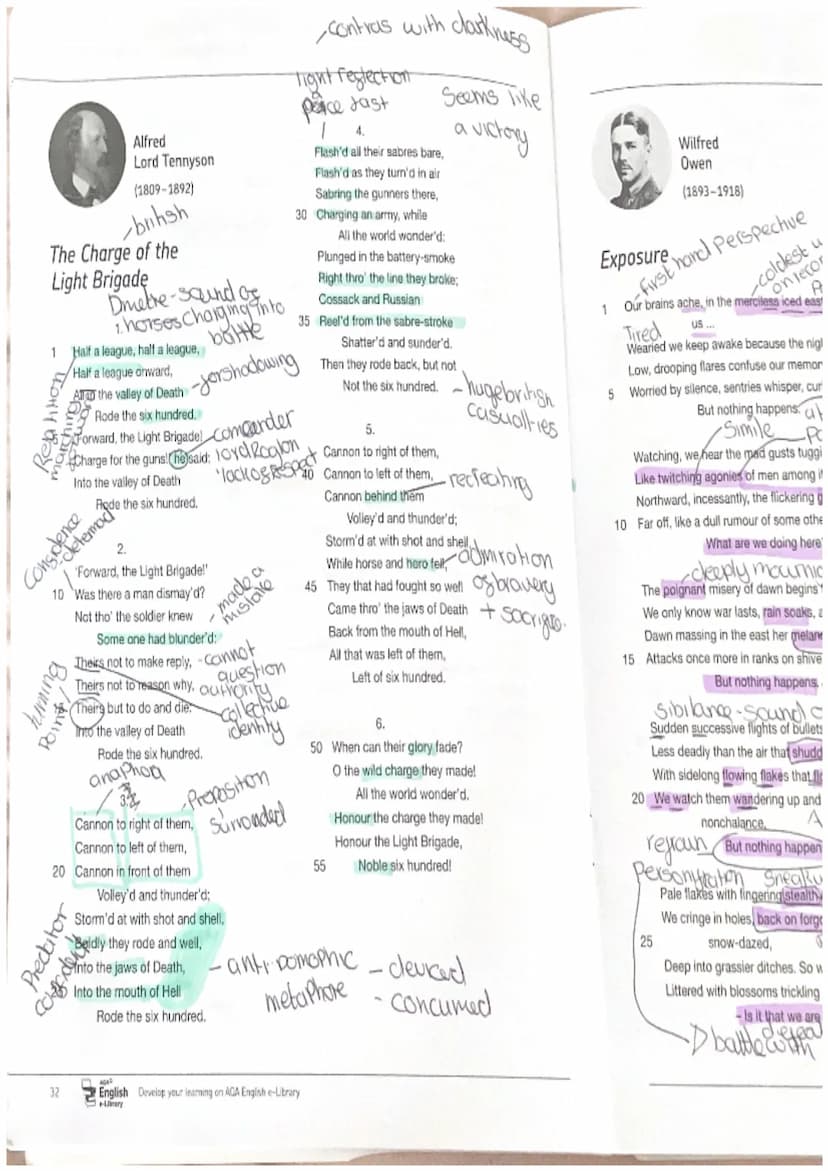 contras with darkness
light reflection
peace fast
Seems like
a victory
Alfred
Lord Tennyson
(1809–1892)
british
The Charge of the
Light Brigade
Dmetre - sound of
horses charging into
battle
1 Half a league, half a league,
Half a league onward,
All in the valley of Death
- forshadowing
Rode the six hundred.
5 'Forward, the Light Brigade!
Charge for the guns!' he said:
Into the valley of Death
Rode the six hundred.
Repitition
marching
comander
lord Raglan
'lack of respect
2.
'Forward, the Light Brigade!'
10 Was there a man dismay'd?
Not tho' the soldier knew
Some one had blunder'd:
Theirs not to make reply,
Theirs not to reason why,
Theirs but to do and die:
Into the valley of Death
Rode the six hundred.
- made a
mistake
- cannot
question
authority
collective
identity
turning
point
anaphora
3.
- Preposition
surrounded
Cannon to right of them,
Cannon to left of them,
20 Cannon in front of them
Volley'd and thunder'd;
Storm'd at with shot and shell,
Boldly they rode and well,
Into the jaws of Death,
25 Into the mouth of Hell
Rode the six hundred.
Preditor
- anti-pomophic
metaphore
- devuced
- concumed
4.
Flash'd all their sabres bare,
Flash'd as they turn'd in air
Sabring the gunners there,
30 Charging an army, while
All the world wonder'd:
Plunged in the battery-smoke
Right thro' the line they broke;
Cossack and Russian
35 Reel'd from the sabre-stroke
Shatter'd and sunder'd.
Then they rode back, but not
Not the six hundred.
- huge british
casualties
5.
Cannon to right of them,
40 Cannon to left of them,
Cannon behind them
Volley'd and thunder'd;
Storm'd at with shot and shell,
While horse and hero fell,
45 They that had fought so well
Came thro' the jaws of Death
Back from the mouth of Hell,
All that was left of them,
Left of six hundred.
recreating
admiration
of bravery
+ sacrifice.
6.
50 When can their glory fade?
O the wild charge they made!
All the world wonder'd.
Honour the charge they made!
Honour the Light Brigade,
55 Noble six hundred!
32
AQA
English
e-Library
Develop your learning on AQA English e-Library
Wilfred
Owen
(1893–1918)
Exposure
first hand perspective
coldest
1 Our brains ache, in the merciless iced east
us ...
Tired
Wearied we keep awake because the
Low, drooping flares confuse our
5 Worried by silence, sentries whisper,
But nothing happens.
Simile
Watching, we hear the mad gusts
Like twitching agonies of men among
Northward, incessantly, the flickering
10 Far off, like a dull rumour of some
What are we doing here
- deeply
The poignant misery of dawn begins
We only know war lasts, rain soaks,
Dawn massing in the east her
15 Attacks once more in ranks on
But nothing happens.
Sibilance - sound
Sudden successive flights of bullets
Less deadly than the air that
With sidelong flowing flakes that
20 We watch them wandering up and
nonchalance,
refrain
But nothing
Personification
Pale flakes with fingering
We cringe in holes, back on
25 snow-dazed,
Deep into grassier ditches. So
Littered with blossoms trickling
- Is it that we are
battle with